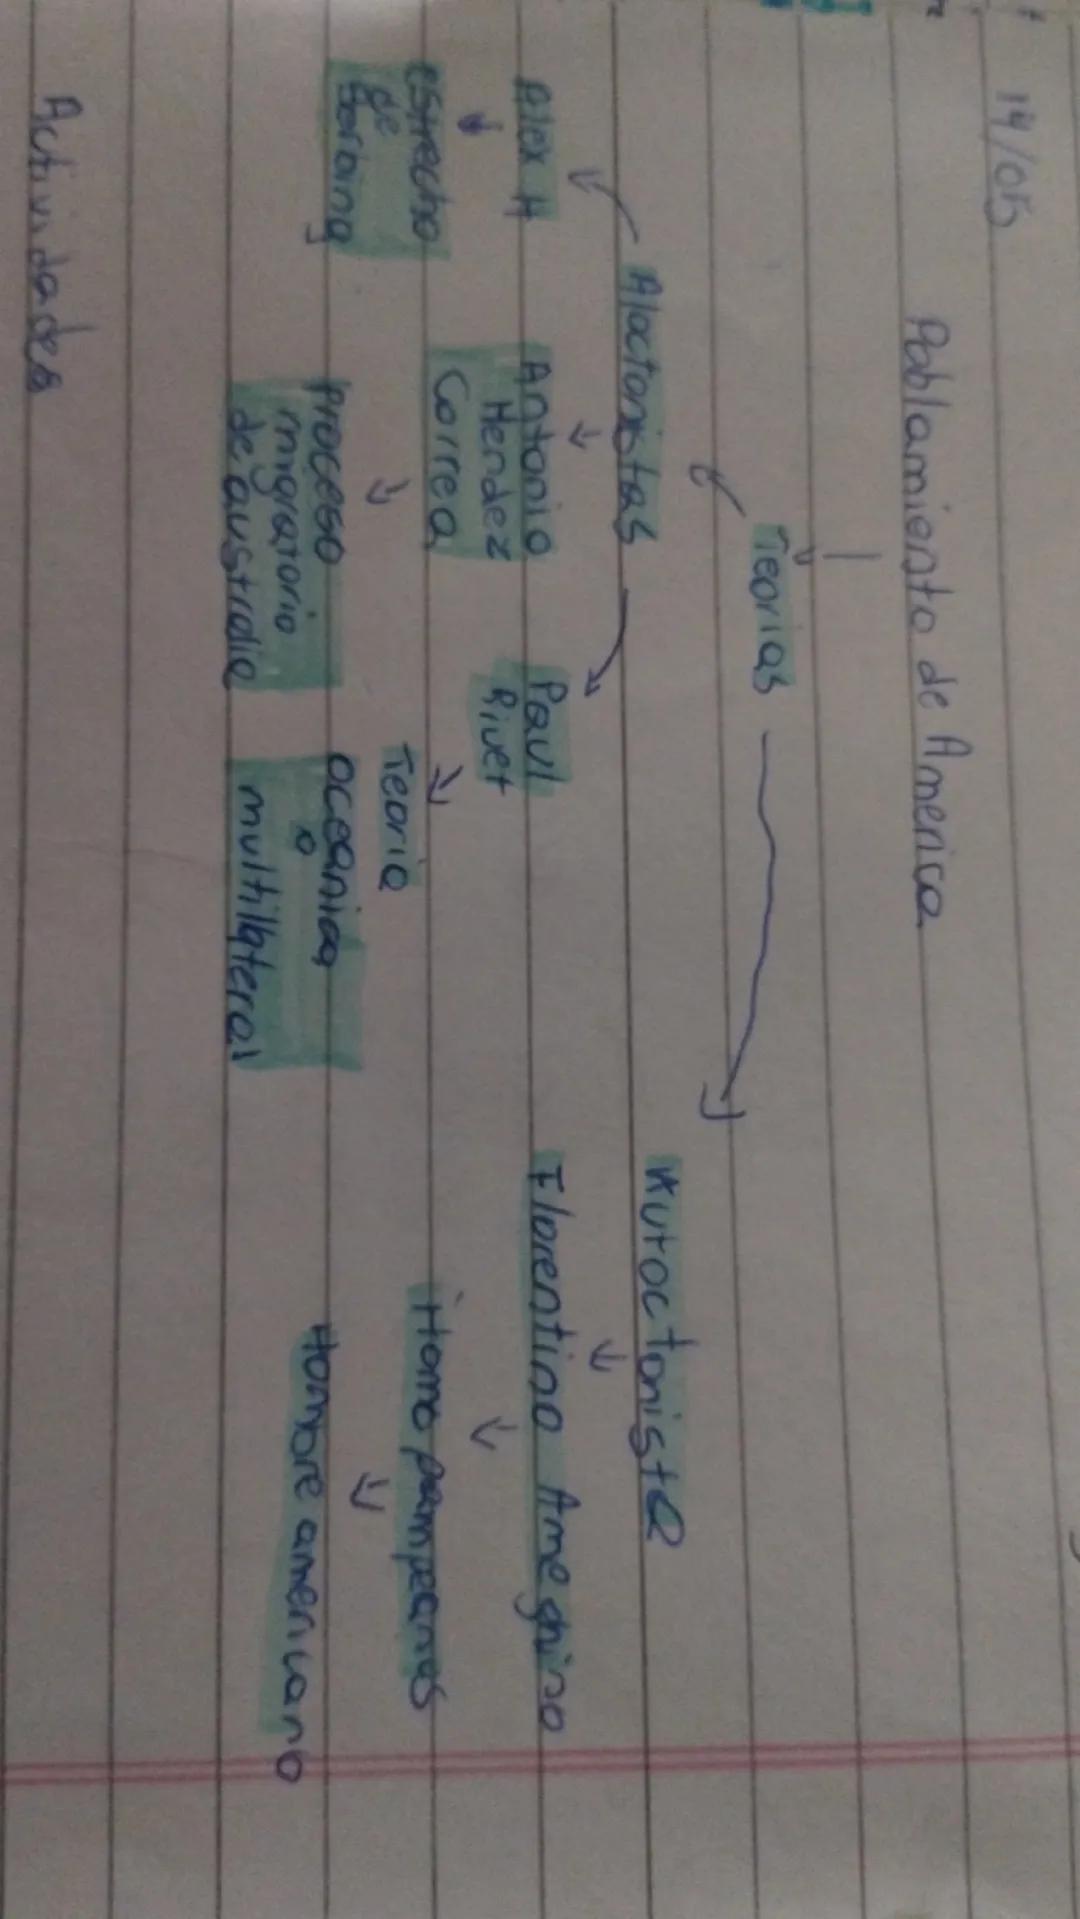 14/05
Poblamiento de America
Teorias
Aloctonistas
Autoctonista
Alex H
Antonio
Mendez
Correa
Paul
Rivet
Florentino Ameghino
estrecho
de
Berbing
Proceso
migratorio
de australia
Teoria
oceanica
o
multilateral
Homo pampeanos
Hombre americano
Actividades